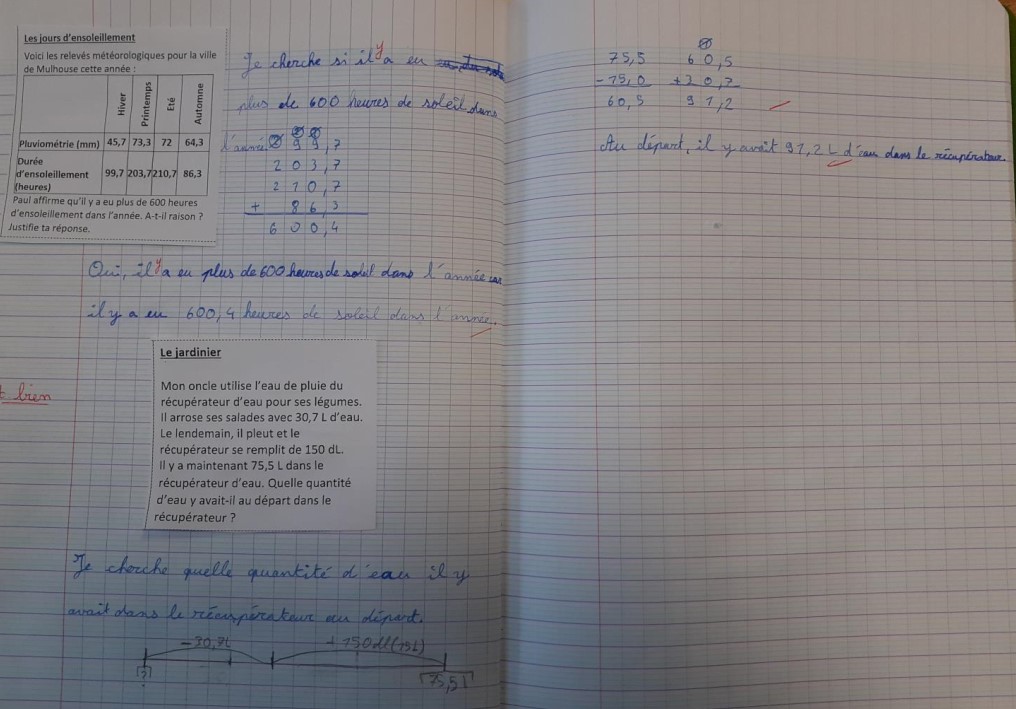 Les jours d'ensoleillement
Voici les relevés météorologiques pour la ville
de Mulhouse cette année :
Hiver Printemps Eté Automne
Pluviométrie (mm) 45,7 73,3 72 64,3
Durée
d'ensoleillement 99,7 203,7 210,7 86,3
(heures)
Paul affirme qu'il y a eu plus de 600 heures
d'ensoleillement dans l'année. A-t-il raison ?
Justifie ta réponse.
Je cherche si il y a eu
plus de 600 heures de soleil dans
l'année. 2 2 2
99,7
203,7
210,7
+ 86,3
600,4
Oui, il y a eu plus de 600 heures de soleil dans l'année car
il y a eu 600,4 heures de soleil dans l'année.
bien
Le jardinier
Mon oncle utilise l'eau de pluie du
récupérateur d'eau pour ses légumes.
Il arrose ses salades avec 30,7 L d'eau.
Le lendemain, il pleut et le
récupérateur se remplit de 150 dL.
Il y a maintenant 75,5 L dans le
récupérateur d'eau. Quelle quantité
d'eau y avait-il au départ dans le
récupérateur ?
Je cherche quelle quantité d'eau il y
avait dans le récupérateur au départ.
-30,7L +150dl(15L)
? 75,5L
75,5 60,5
-15,0 +30,7
60,5 91,2
Au départ, il y avait 91,2 L d'eau dans le récupérateur.